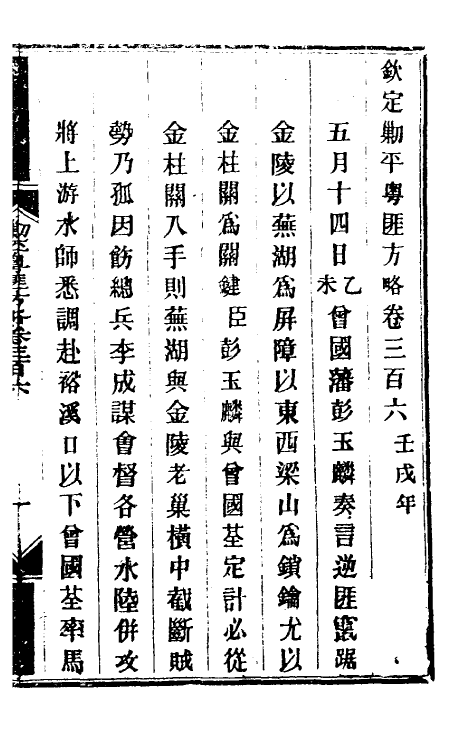 欽定勦平粵匪方略卷三百六壬戌年
五月十四日乙未曾國藩彭玉麟奏言逆匪竄踞
金陵以蕪湖爲屏障以東西梁山爲鎖鑰尤以
金柱關爲關鍵臣彭玉麟與曾國荃定計必從
金柱關入手則蕪湖與金陵老巢橫中截斷賊
勢乃孤因飭總兵李成謀會督各營水陸併攻
將上游水師悉調赴裕溪口以下曾國荃率馬